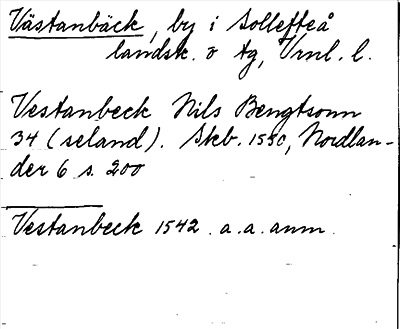 Västanbäck, by i Sollefteå
landsk. o tg, Vrnl. l.
Vestanbeck Nils Bengtsonn
34 (seland). Skb. 1550, Nordlan-
der 6 s. 200
Vestanbeck 1542. a.a. anm.